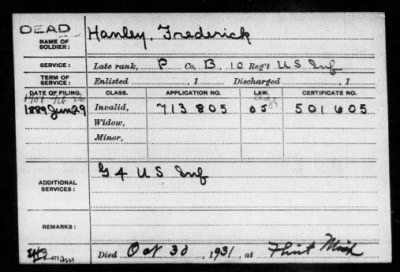 DEAD
NAME OF SOLDIER: Hanley, Frederick
SERVICE: Late rank, P Co. B, 10 Reg't U S Inf
TERM OF SERVICE: Enlisted , 1 Discharged , 1
DATE OF FILING. CLASS. APPLICATION NO. LAW. CERTIFICATE NO.
1889 Jun 29 Invalid, 713805 501605
Widow,
Minor,
ADDITIONAL SERVICES: G 4 U S Inf
REMARKS:
Died Oct 30, 1931, at Flint Mich